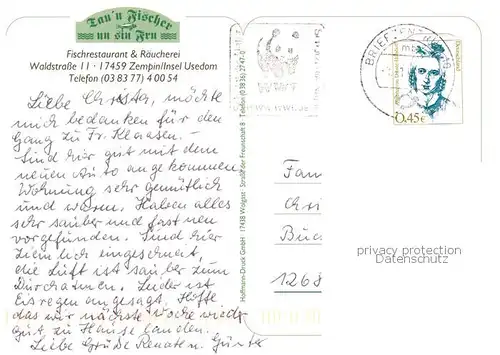 Tau'n Fischer
un sin Fru
Fischrestaurant & Räucherei
Waldstraße 11 · 17459 Zempin/Insel Usedom
Telefon (03 83 77) 4 00 54
Liebe Christa, möchte
mich bedanken für den
Gang zu Fr. Klaasen. –
Sind hier gut mit dem
neuen Auto angekommen,
Wohnung sehr gemütlich
und warm. Haben alles
sehr sauber und fast neu
vorgefunden. Sind hier
ziemlich eingeschneit,
die Luft ist sauber zum
Durchatmen. Leider ist
Eisregen angesagt. Hoffe
das wir nächste Woche wieder
gut zu Hause landen.
Liebe Grüße Renate u. Günter
Hoffmann-Druck GmbH · 17438 Wolgast · Straße der Freundschaft 8 · Telefon (0 38 36) 2747-0
WWF
BRIEFZENTRUM
Deutschland
0,45€
Fam
Chri
Buc
1268
privacy protection
Datenschutz